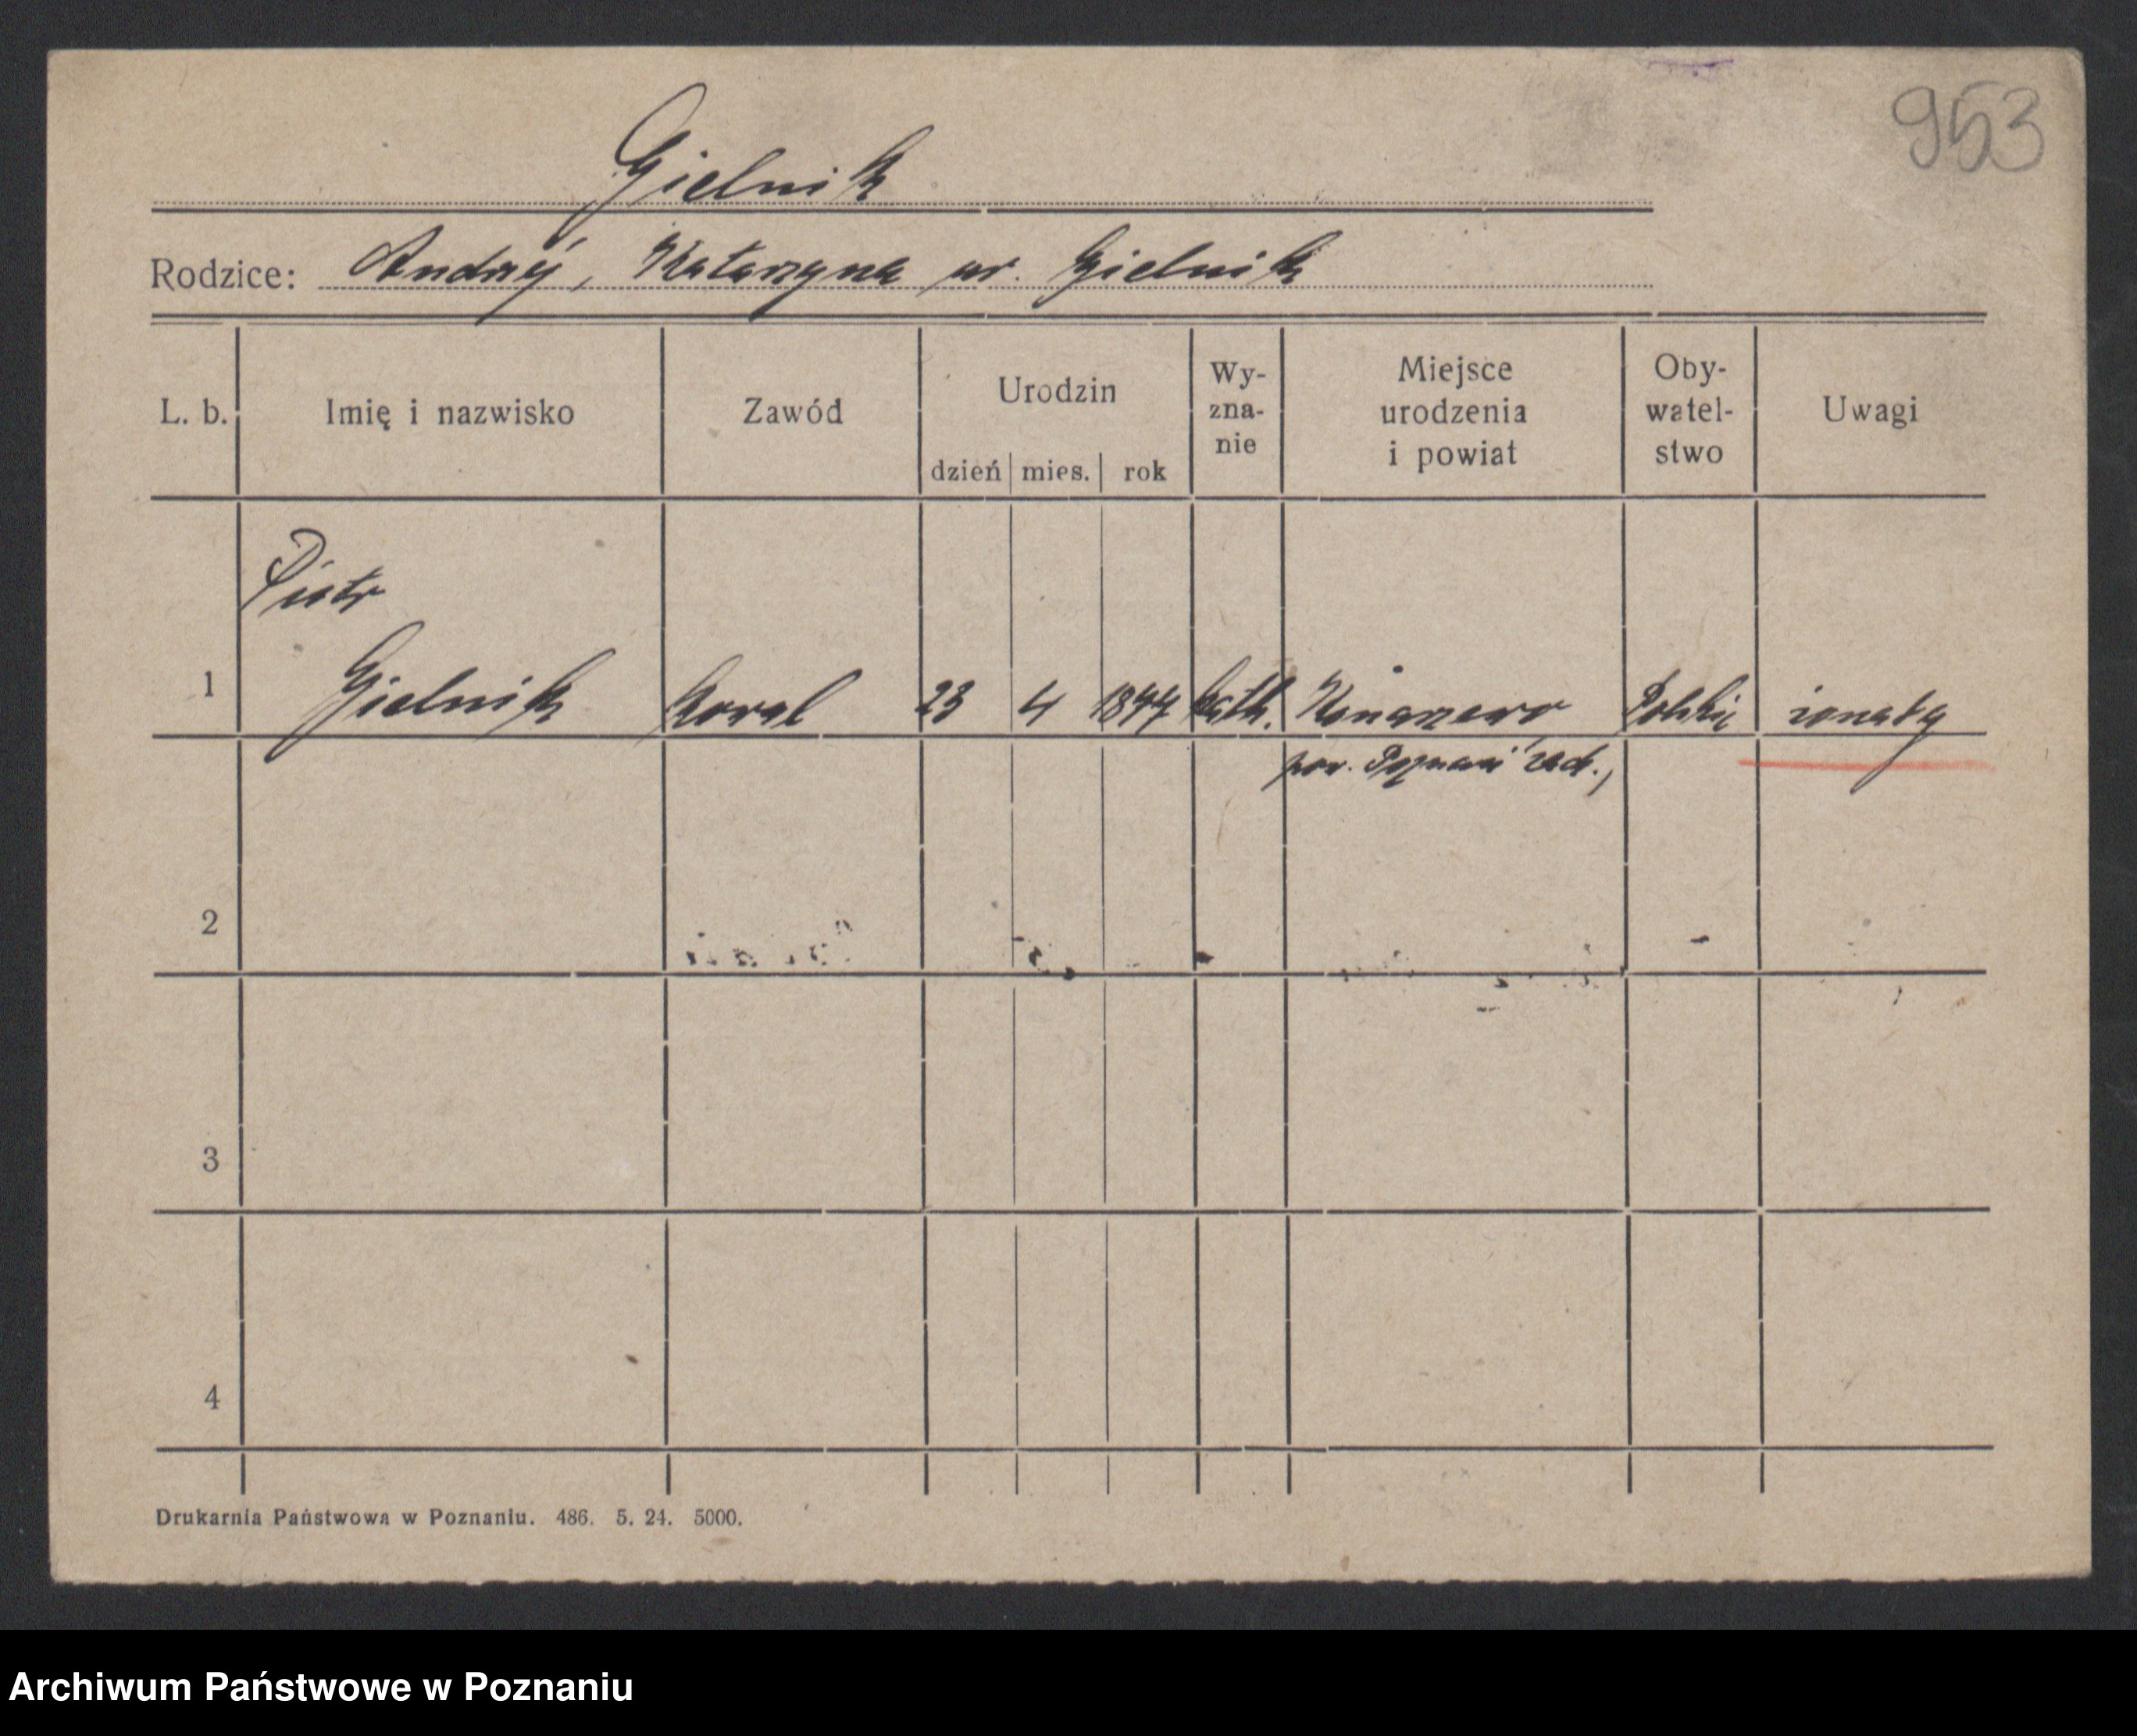 953
Gielnik
Rodzice: Andrzej, Katarzyna ur. Gielnik
L. b. Imię i nazwisko Zawód Urodzin dzień mies. rok Wy-zna-nie Miejsce urodzenia i powiat Oby-watel-stwo Uwagi
Piotr
1 Gielnik kowal 23 4 18 kath. Konarzewo Polskie żonaty
pow. Poznań zach.,
2
3
4
Drukarnia Państwowa w Poznaniu. 486. 5. 24. 5000.
Archiwum Państwowe w Poznaniu